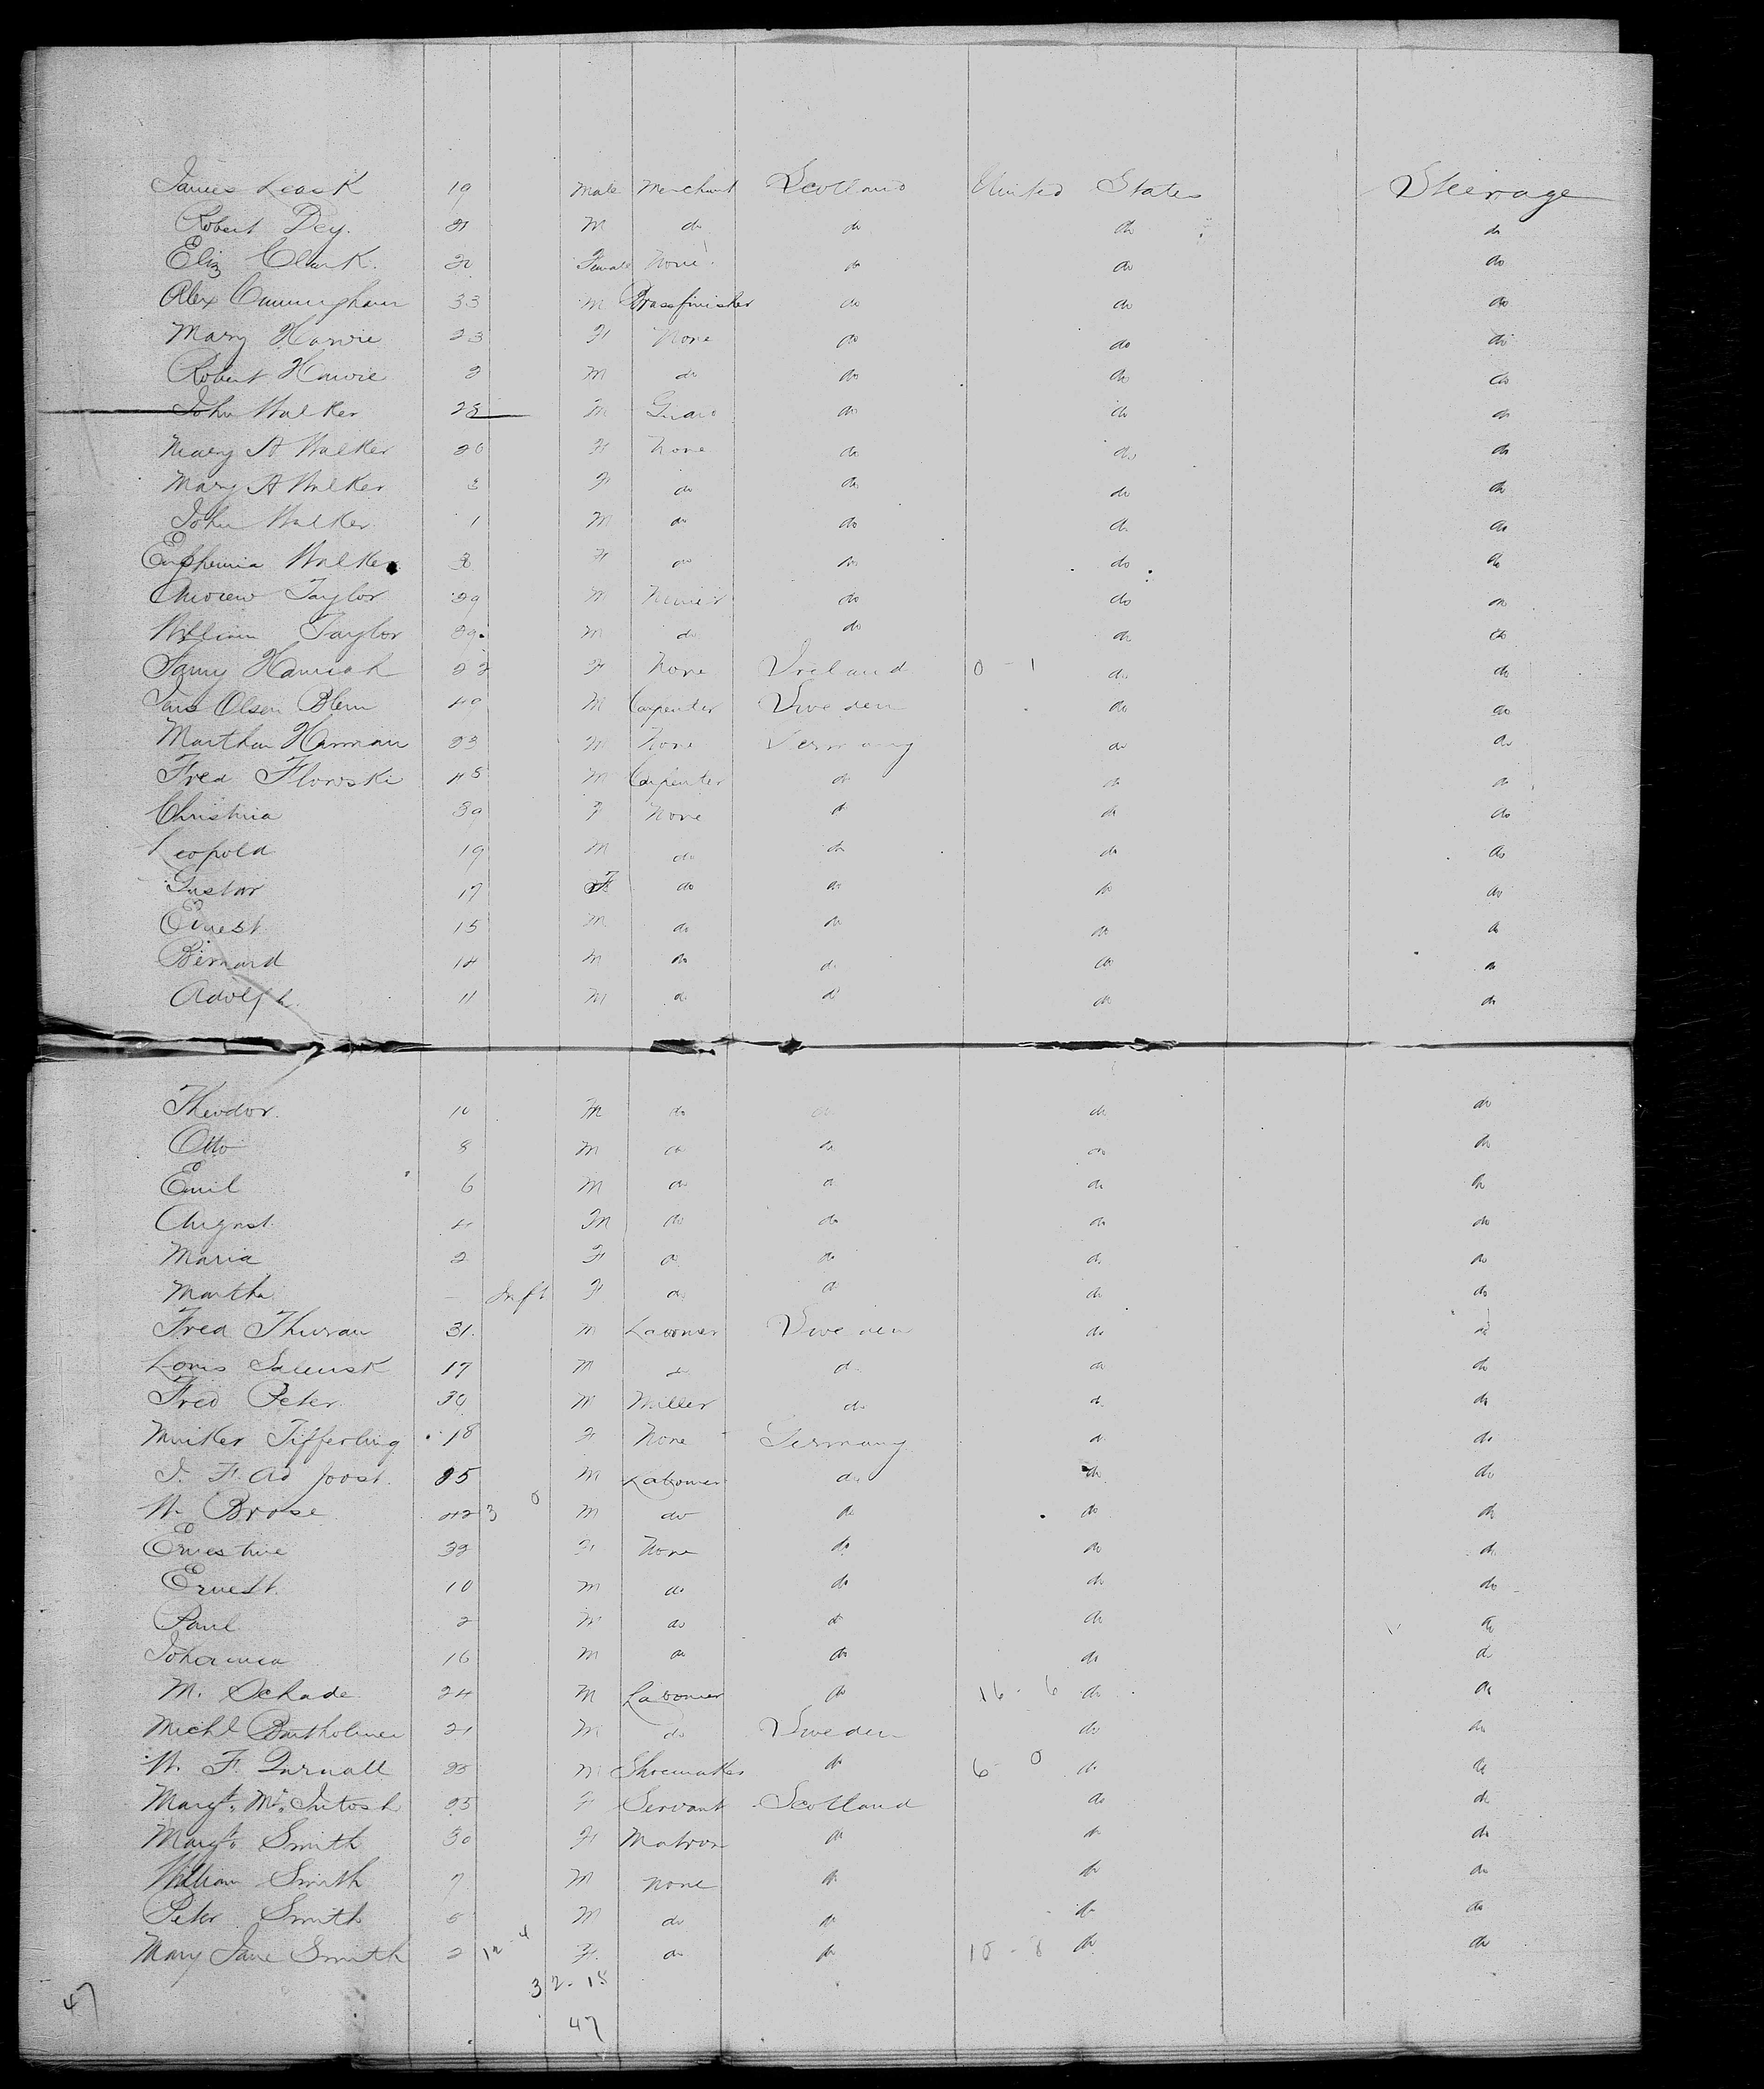 James Leask 19 Male Merchant Scotland United States Steerage
Robert Dey. 21 M do do do do
Eliz Clark. 20 Female None do do do
Alex Cunningham 33 M Brassfinisher do do do
Mary Harvie 23 F None do do do
Robert Harvie 2 M do do do do
John Walker 28 M Guard do do do
Mary A Walker 26 F None do do do
Mary A Walker 3 F do do do do
John Walker 1 M do do do do
Euphemia Walker 8 F do do do do
Andrew Taylor 29 M do do do
William Taylor 29 M do do do do
Hannah 22 F None Ireland 0 - 1 do do
Olsen Blem 40 M Carpenter Sweden do do
Harman 23 None Germany do do
Fred Flowski 45 M Carpenter do do do
Christina 39 F None do do do
Leopold 19 M do do do do
Gustav 17 F do do do do
Ernest 15 M do do do do
Bernard 14 M do do do do
Adolph. 11 M do do do do
Theodor. 10 M do do do do
Otto 8 M do do do do
Emil 6 M do do do do
August 4 M do do do do
Maria 2 F do do do do
Martha Inft F do do do do
Fred Thurau 31. M Labourer Sweden do do
Louis 17 M do do do do
Fred Peter. 30 M Miller do do do
Tifferling 18 F None Germany do do
J. F. Ad Joost. 25 M Labourer do do do
W. Brose 42 3 0 M do do do do
Ernestine 32 F None do do do
Ernest. 10 M do do do do
Paul 2 M do do do do
Johanna 16 M do do do do
M. Schade 24 M Labourer do 16 - 6 do do
Michl Bartholmen 21 M do Sweden do do
W. F. 25 M Shoemaker do 6 - 0 do do
Margt. Mc. Intosh 25 F Servant Scotland do do
Margt. Smith 30 F Matron do do do
William Smith 7 M None do do do
Peter Smith 5 M do do do do
Mary Jane Smith 2 12 - 4 F. do do 10 - 8 do do
32 - 15
47 47